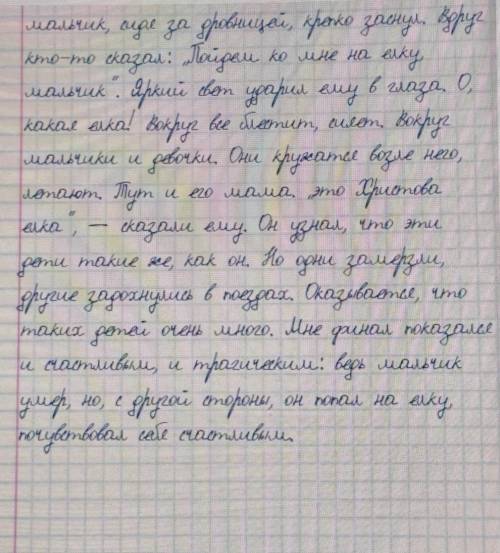 мальчик, сидя за дровницей, крепко заснул. Вдруг
кто-то сказал: „Пойдем ко мне на елку,
мальчик". Яркий свет ударил ему в глаза. О,
какая елка! Вокруг все блестит, сияет. Вокруг
мальчики и девочки. Они кружатся возле него,
летают. Тут и его мама. „Это Христова
елка", — сказали ему. Он узнал, что эти
дети такие же, как он. Но одни замерзли,
другие задохнулись в поездах. Оказывается, что
таких детей очень много. Мне финал показался
и счастливым, и трагическим: ведь мальчик
умер, но, с другой стороны, он попал на елку,
почувствовал себя счастливым.